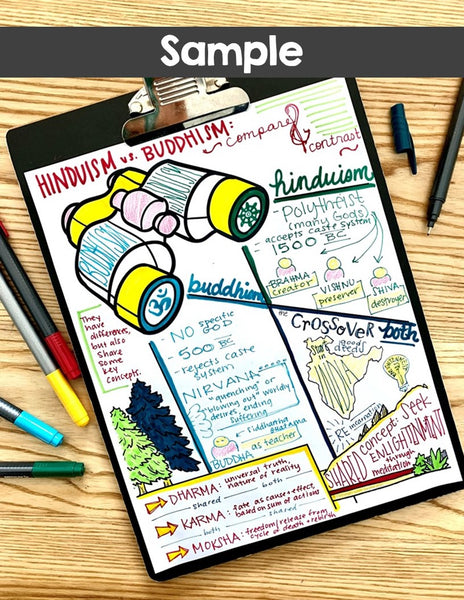 Sample
HINDUISM vs. BUDDHISM:
compare &
contrast
hinduism
- Polytheist
(many Gods)
- accepts caste system
1500 BC
BRAHMA
creator
VISHNU
preserver
SHIVA
destroyer
BUDDHISM
ॐ
They
have
differences,
but also
share
some
key
concepts.
buddhism
- NO specific
GOD
- 500 BC
- rejects caste
system
NIRVANA
"quenching" or
"blowing out" worldly
desires, ending
suffering
Siddhartha
Gautama
BUDDHA as teacher
the
CROSSOVER both
Start
in
INDIA
good
deeds
REincarnation
SHARED concept: Seek
ENLIGHTENMENT
through
meditation
DHARMA: universal truth,
nature of reality
shared both
KARMA: fate as cause & effect,
based on sum of actions
both shared
MOKSHA: freedom/release from
cycle of death & rebirth